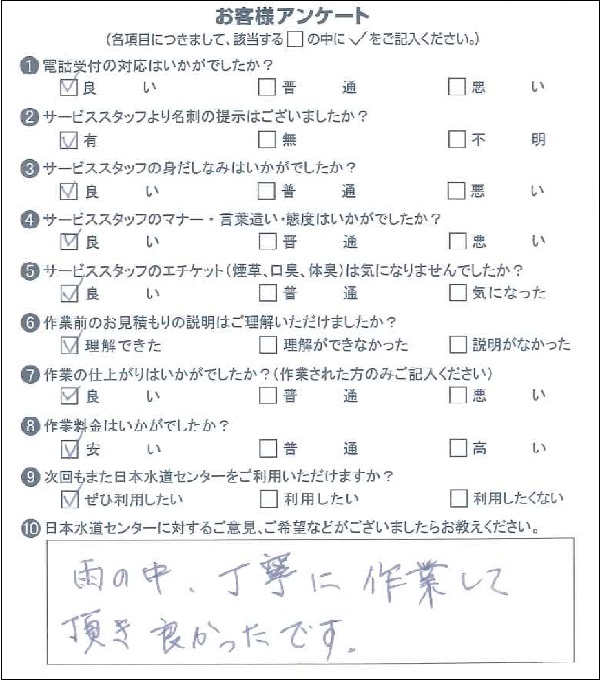 お客様アンケート
(各項目につきまして、該当する□の中に✓をご記入ください。)
❶電話受付の対応はいかがでしたか?
☑良い □普通 □悪い
❷サービススタッフより名刺の提示はございましたか?
☑有 □無 □不明
❸サービススタッフの身だしなみはいかがでしたか?
☑良い □普通 □悪い
❹サービススタッフのマナー・言葉遣い・態度はいかがでしたか?
☑良い □普通 □悪い
❺サービススタッフのエチケット(煙草、口臭、体臭)は気になりませんでしたか?
☑良い □普通 □気になった
❻作業前のお見積もりの説明はご理解いただけましたか?
☑理解できた □理解ができなかった □説明がなかった
❼作業の仕上がりはいかがでしたか?(作業された方のみご記入ください)
☑良い □普通 □悪い
❽作業料金はいかがでしたか?
☑安い □普通 □高い
❾次回もまた日本水道センターをご利用いただけますか?
☑ぜひ利用したい □利用したい □利用したくない
❿日本水道センターに対するご意見、ご希望などがございましたらお教えください。
雨の中、丁寧に作業して
頂き良かったです。